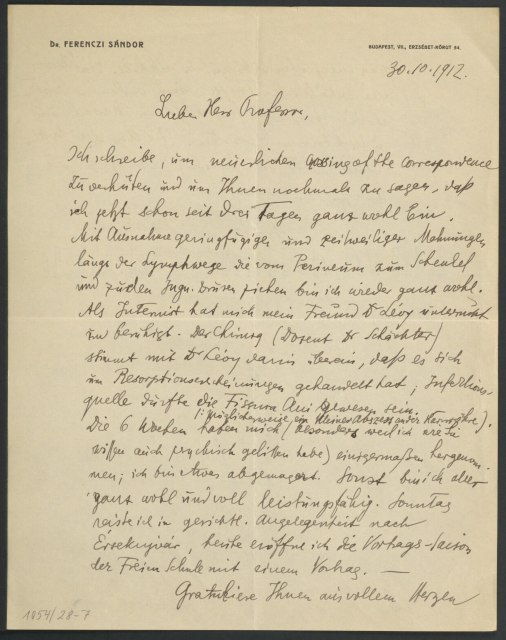 Dr. FERENCZI SÁNDOR
BUDAPEST, VII., ERZSÉBET-KÖRUT 54.
30.10.1912.
Lieber Herr Professor,
Ich schreibe, um neuerlichen crossing of the correspondence
zu verhüten und um Ihnen nochmals zu sagen, daß
ich jetzt schon seit drei Tagen ganz wohl bin.
Mit Ausnahme geringfügiger und zeitweiliger Mahnungen
längs der Lymphwege die vom Perineum zum Schenkel
und zu den Ingu. drüsen ziehen bin ich wieder ganz wohl.
Als Internist hat mich mein Freund Dr Lévy untersucht
und beruhigt. Der Chirurg (Dozent Dr Schächter)
stimmt mit Dr Lévy darin überein, daß es sich
um Resorptionserscheinungen gehandelt hat; Infektions-
quelle dürfte die Fissura Ani gewesen sein.
(: Möglicherweise ein kleiner Abszess an der
Die 6 Wochen haben mich (besonders weil ich wie Sie
wissen auch psychisch gelitten habe) einigermaßen hergenom-
men; ich bin etwas abgemagert. Sonst bin ich aber
ganz wohl und voll leistungsfähig. Sonntag
reiste ich in gerichtl. Angelegenheit nach
Érsekujvár, heute eröffne ich die Vortrags-Saison
der Freien Schule mit einem Vortrag. —
Gratuliere Ihnen aus vollem Herzen
1054/28-7